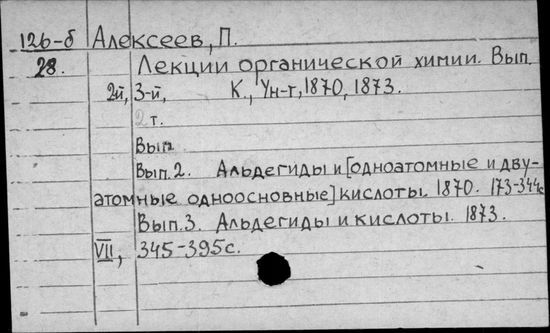 126-б Алексеев, П.
28. Лекции органической химии. Вып.
2й, 3-й, К., Ун-т, 1870, 1873.
2 т.
Вып
Вып. 2. Альдегиды и [одноатомные и дву-
атомные одноосновные] кислоты. 1870. 173-344с
Вып. 3. Альдегиды и кислоты. 1873.
VII, 345-395с.